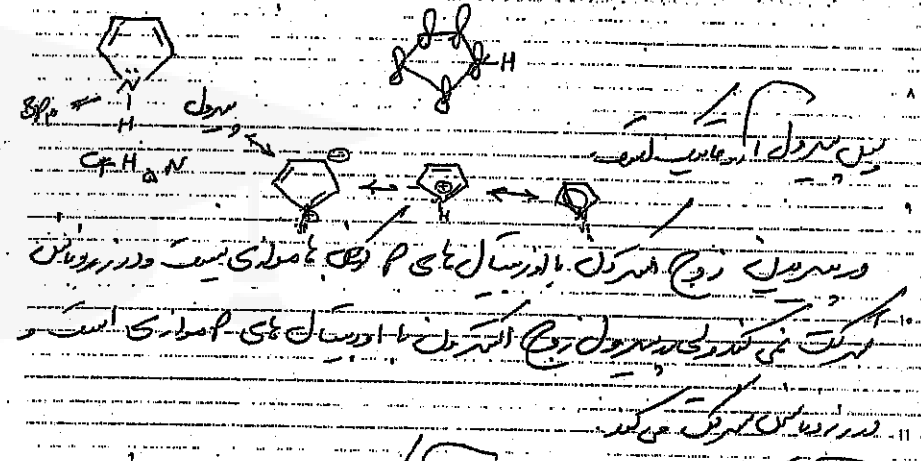 H
N
H
پیرول
پس پیرول آروماتیک است.
H
در پیریدین زوج الکترون با اوربیتال های P موازی نیست و در رزونانس
شرکت نمی کند ولی در پیرول زوج الکترون با اوربیتال های P موازی است و
در رزونانس شرکت می کند.